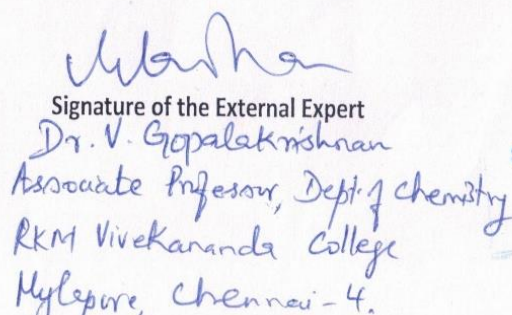 Signature of the External Expert
Dr. V. Gopalakrishnan
Associate Professor, Dept. of Chemistry
RKM Vivekananda College
Mylapore, Chennai-4.